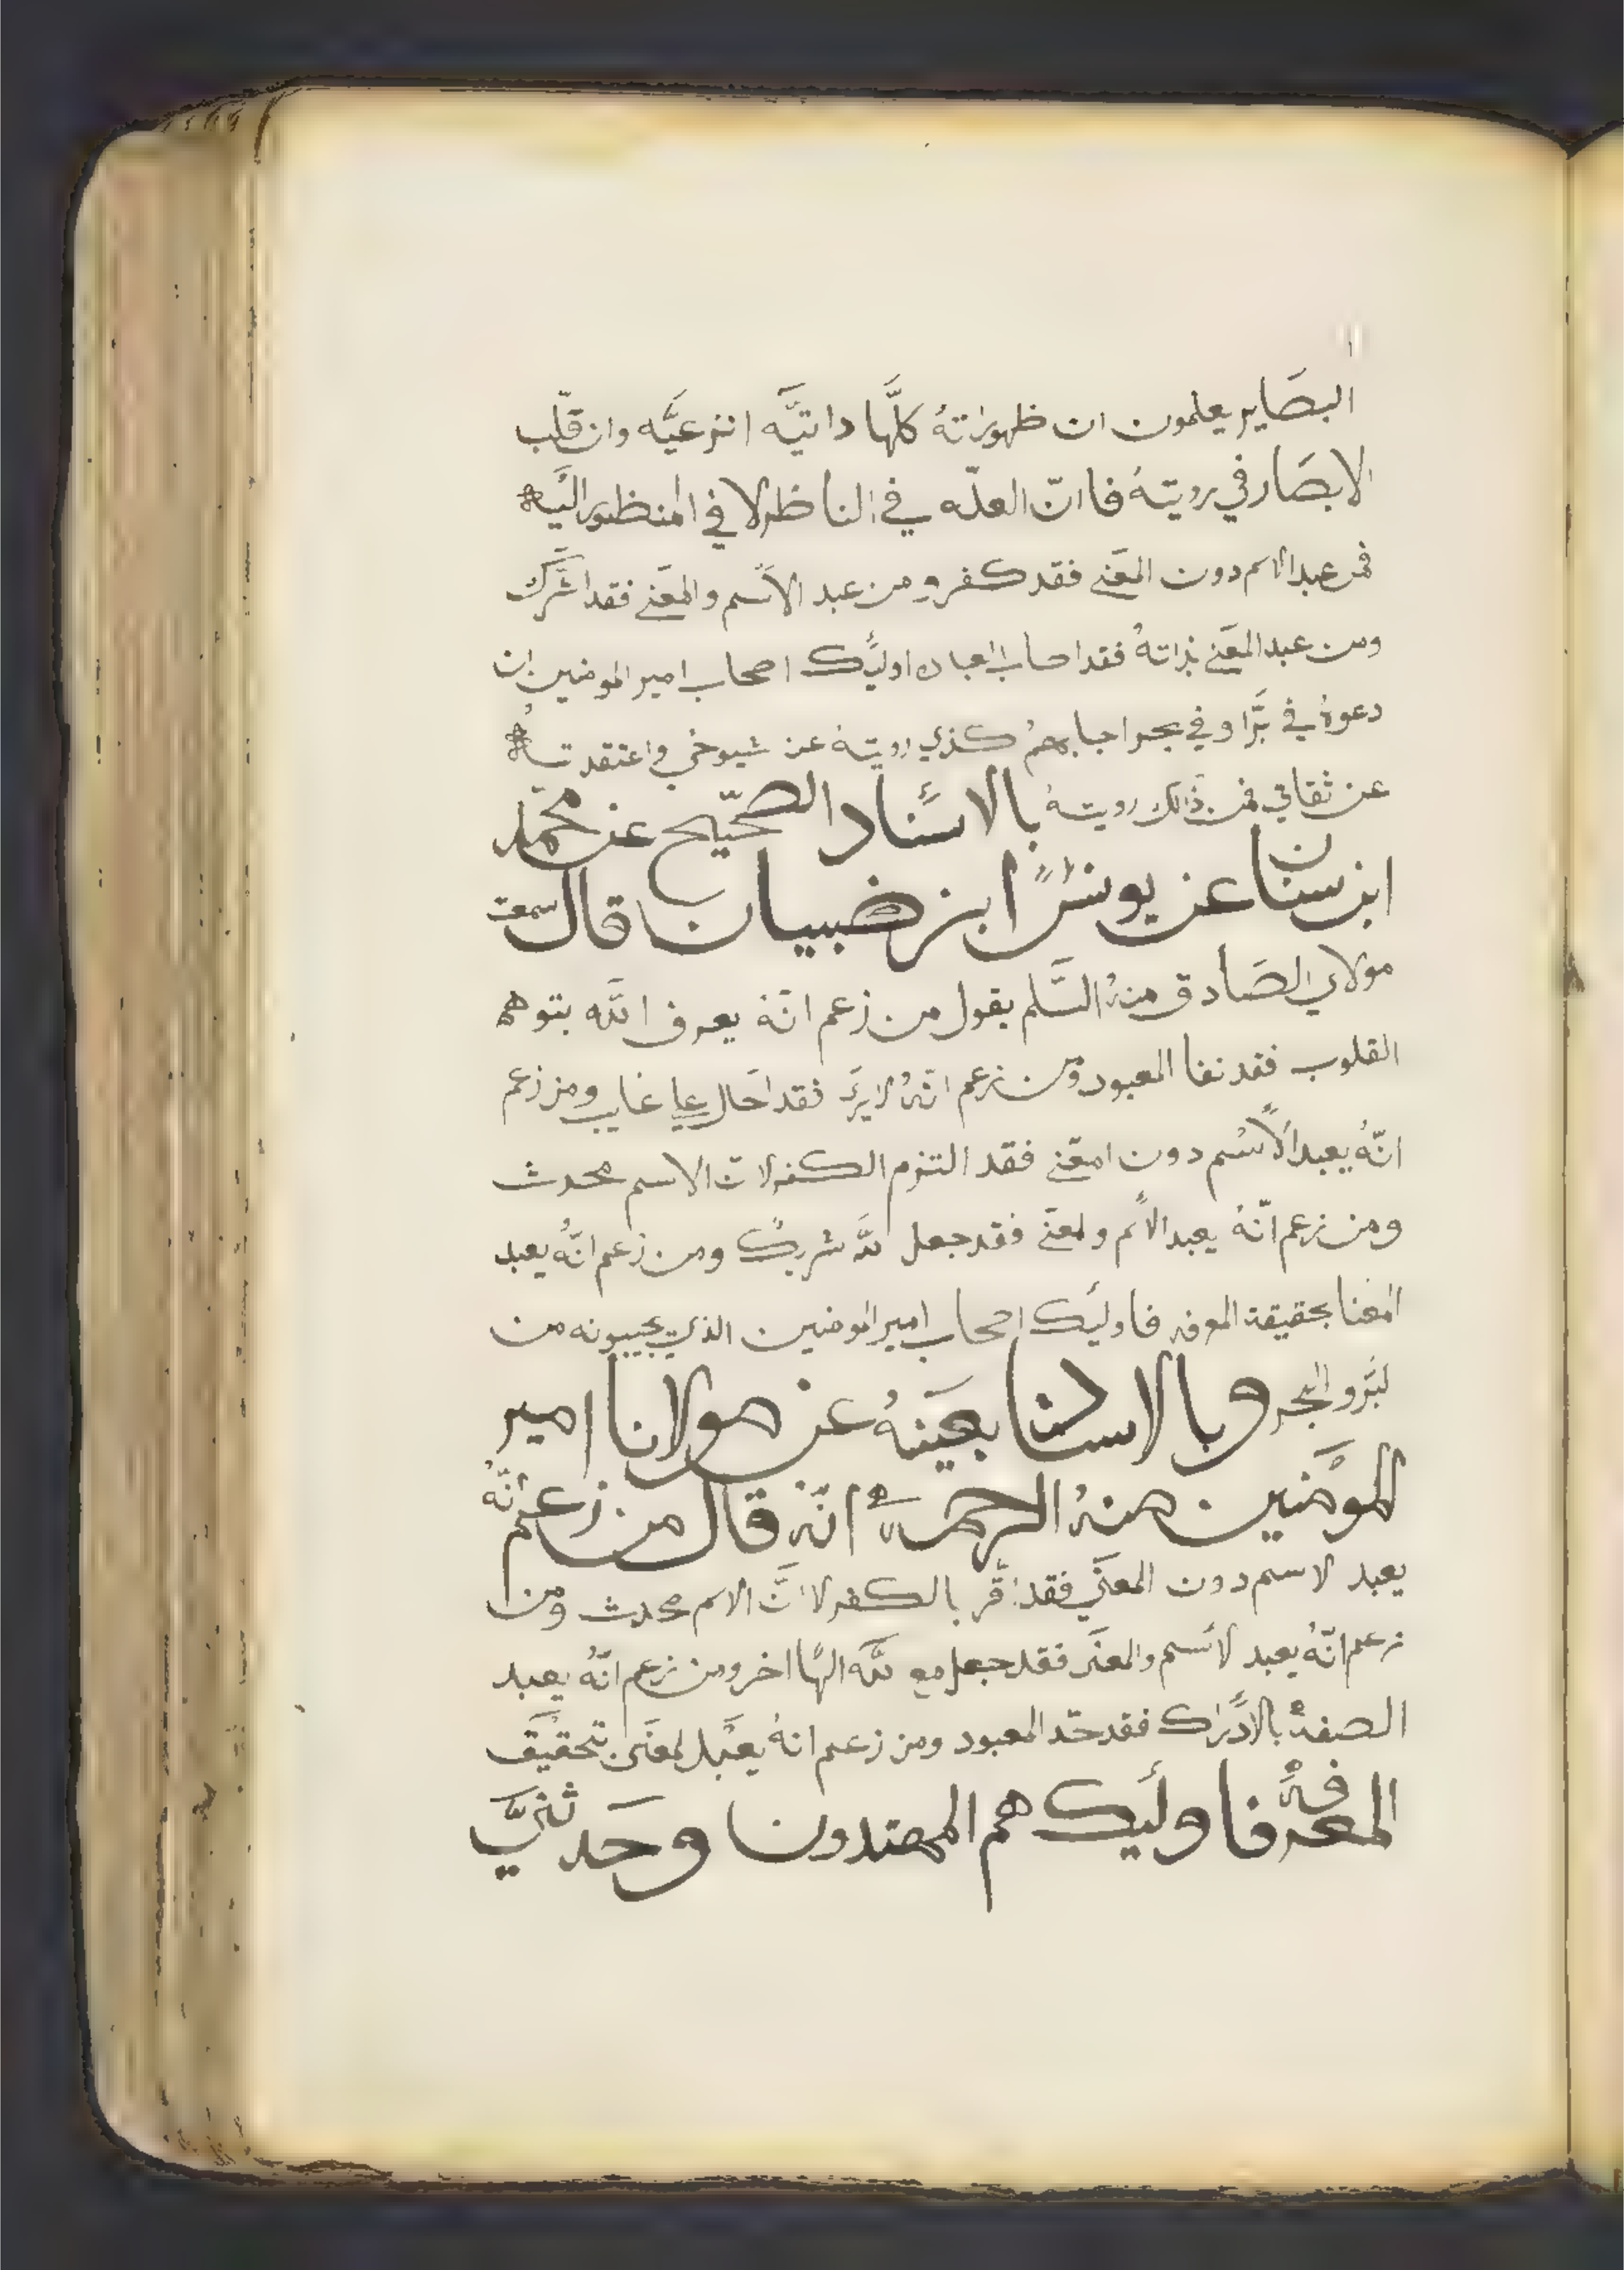 البصَاير يعلمون ان ظهوراتهُ كلَّها داتيَّه انزعيَّه وان قلّب
الابصَار في رويتهُ فاانّ العلّه في الناظر لا في المنظور اليَه
فمن عبد الاسم دون المعَنى فقد كفر ومن عبد الاَسم والمعَنى فقد اشَرك
ومن عبد المعَنى بذاتهُ فقد اصاب اوليَك اصحاب امير المومنين ان
دعوهُ في برَّ او في بحر اجابهمُ كذي رويتهُ عن شيوخي واعتقدتـهُ
عن ثقاتي فمن ذالك رويتهُ بالاسَناد الصّحيّح عن محمّد
ابن سنان عن يونسً ابن ضبيان قال سمعت
مولاي الصَادق منهُ السَّلم يقول من زعم انّهُ يعرف اللَّه بتوهم
القلوب فقد نفا المعبود ومن زعم انّهُ لا يرَى فقد احَال على غايب ومن زعم
انّهُ يعبد الاًسُم دون امعَنى فقد التزم الكفر لانّ الاسم محدث
ومن زعم انّهُ يعبد الاًسم ولمعَنى فقد جعل للَّه شريكً ومن زعم انَّهُ يعبد
المعنا بحقيقة المعرفه فاوليَك اصحاب امير المومنين الذي يجيبونه من
لبَر والبحر وبالاسناد بعَينهُ عن مولانا امير
الموَمنين منهُ الرحمـهُ انّهُ قال من زعم انّهُ
يعبد لاسم دون المعنَى فقد اقَر بالكفر لاانَّ الاسم محدث ومن
زعم انّهُ يعبد لاسَم والمعنَى فقد جعل مع للَّه الهًا اخر ومن زعم انّهُ يعبد
الصفهُ بالادًراك فقد حَد المعبود ومن زعم انهُ يعَبد لمعنَى بتحقيَق
المعرفهً فاولَيك هم المهتدون وحَدثنيَّ